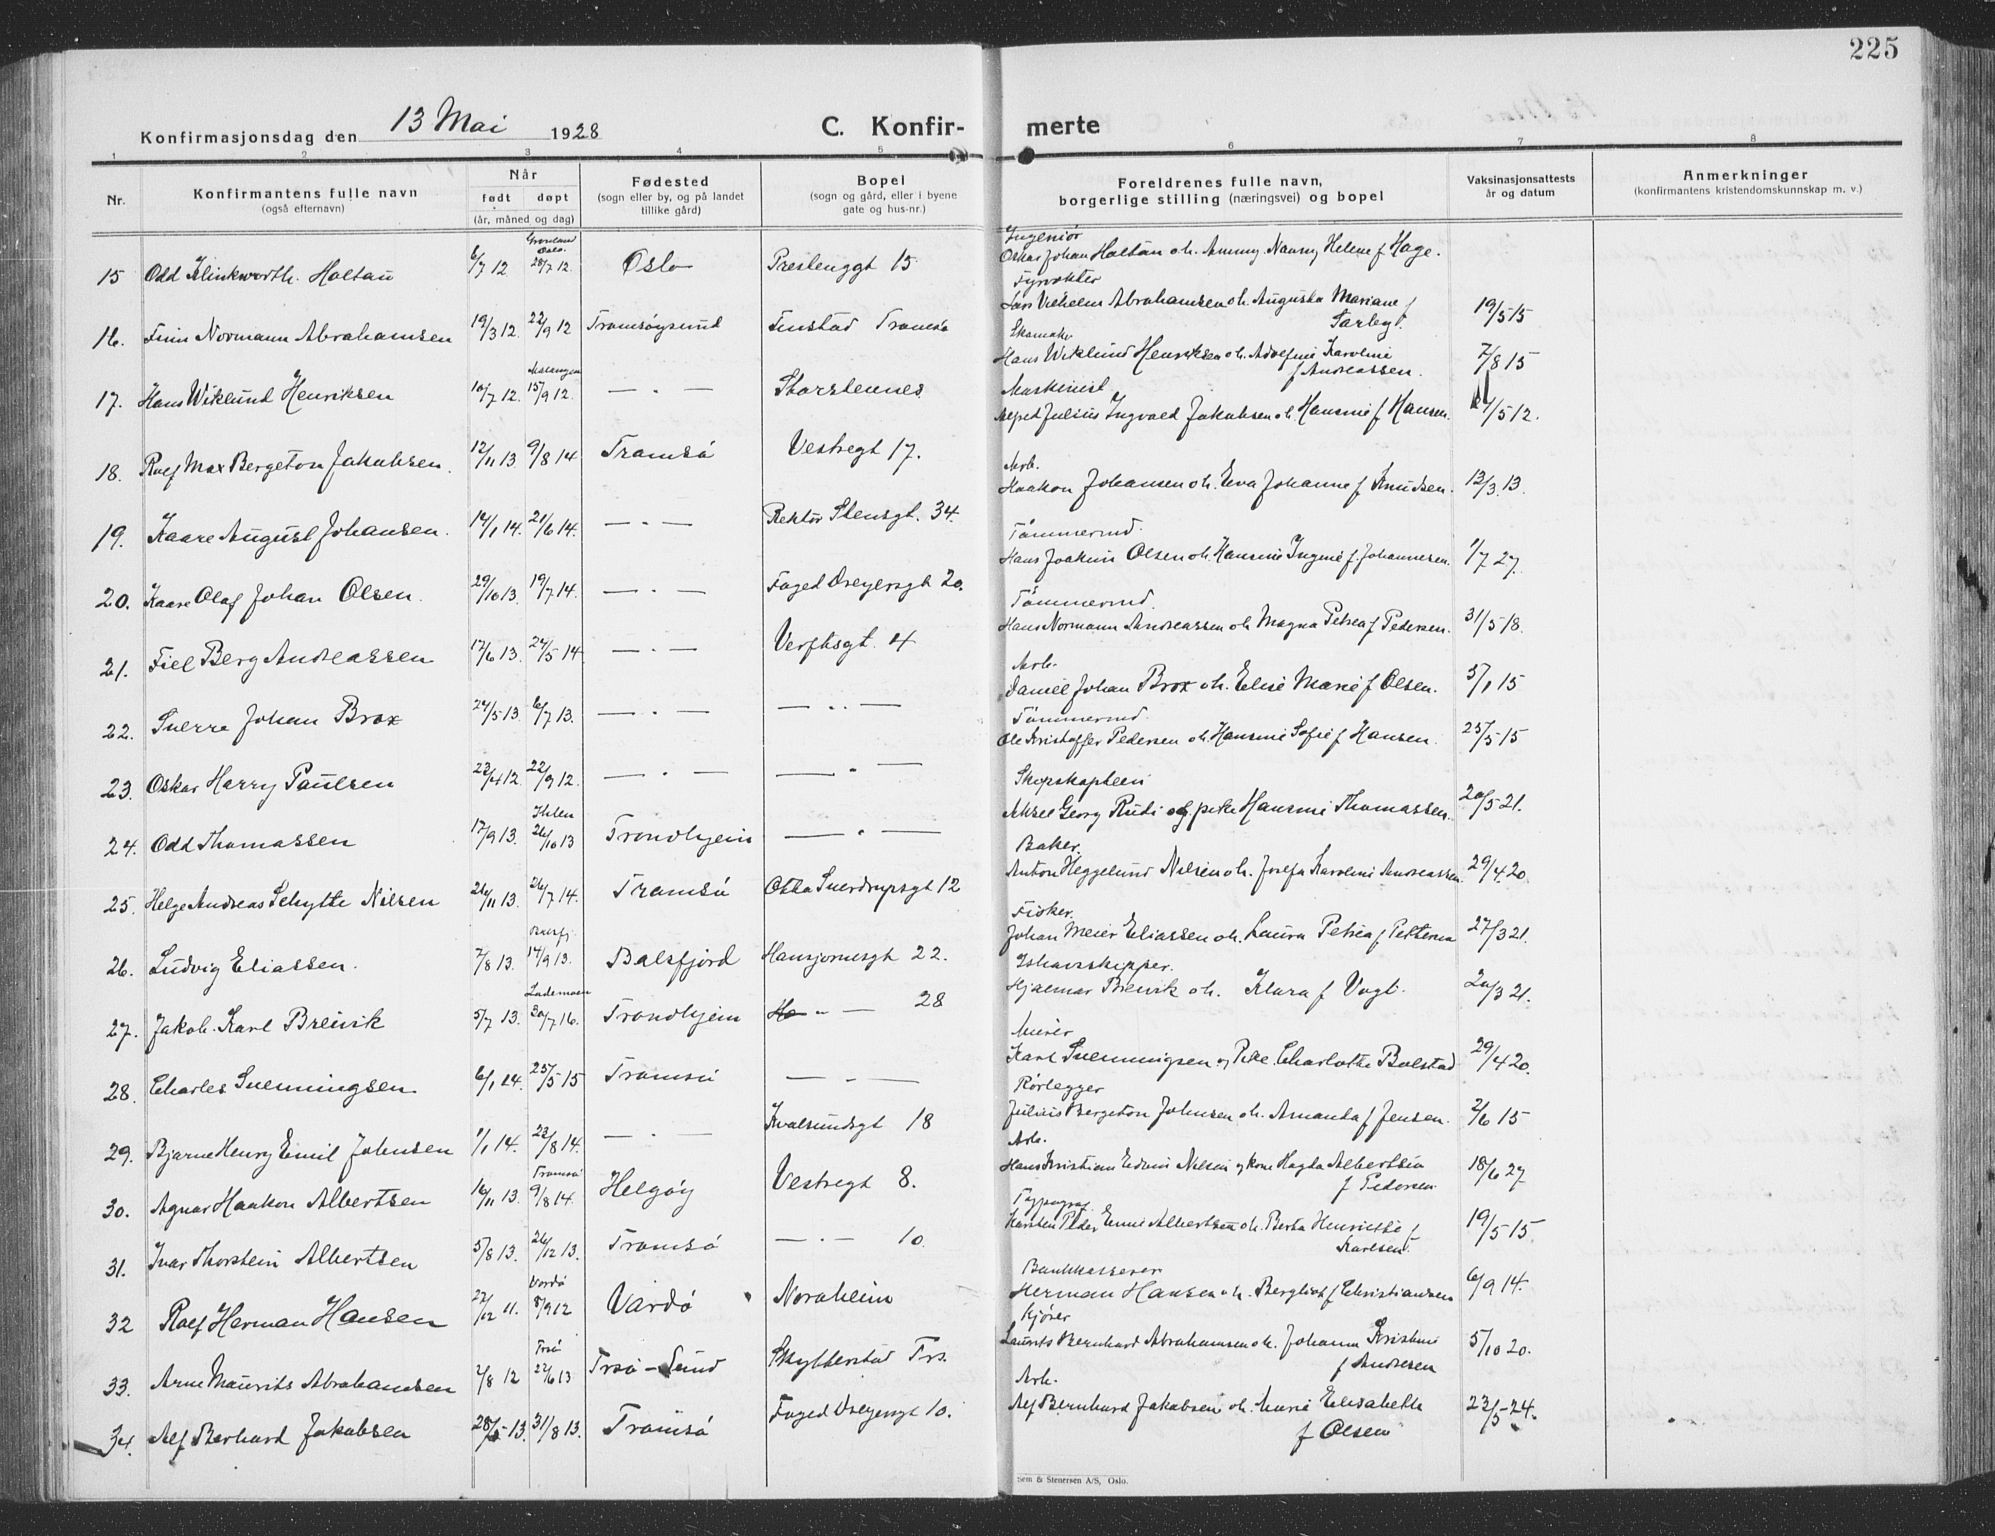 225
Konfirmasjonsdag den 13 Mai 1928
C. Konfir- merte
1 2 3 4 5 6 7 8
Nr. Konfirmantens fulle navn (også efternavn) Når født døpt (år, måned og dag) Fødested (sogn eller by, og på landet tillike gård) Bopel (sogn og gård, eller i byene gate og hus-nr.) Foreldrenes fulle navn, borgerlige stilling (næringsvei) og bopel Vaksinasjonsattests år og datum Anmerkninger (konfirmantens kristendomskunnskap m. v.)
15 Odd Klinkwerth. Holtan 6/7 12 Oslo. 28/7 12. Oslo 15 Ingeniør Oskar Johan Holtan o h. Nanny Helene f Hage.
16. Finn Normann Abrahamsen 19/3 12. 22/9 12 Tromsøysund Tromsø Fyrvokter Vilhelm Abrahamsen o h. Augusta Mariane f 19/5 15
17. Hans Wiklund Henriksen 10/7 12. Malangen 15/9 12. — " — Storstennes Hans Wiklund Henriksen o h. Karoline f Andreassen. 7/8 15
18. Rolf Max Bergeton Jakobsen. 12/11 13. 9/8 14 Tromsø Vestregt 17. Maskinist Julius Ingvald Jakobsen o h Hansine f Hansen. 5 12.
19. Kaare August Johansen. 14/1 14. 21/6 14. — " — Rektor Stensgt. 34. Arb. Haakon Johansen o h. Eva Johanne f Knudsen. 13/3. 13.
20. Kaare Olaf Johan Olsen. 29/10 13. 19/7 14. — " — Foged Dreyersgt 20. Tømmermd. Hans Joakim Olsen o h. Hansine f. Johannesen. 1/7 27.
21. Fiel Berg Andreassen 17/6 13. 24/5 14 — " — Verftsgt. 4 Tømmermd. Hans Normann Andreassen o h Magna Petrea f Pedersen. 31/5 18.
22. Sverre Johan Brox 24/5 13. 6/7 13. — " — — " — Arb. Daniel Johan Brox o h. Elise Marie f Olsen. 5/1 15
23. Oskar Harry Paulsen 23/4 12. 22/9 12. — " — — " — Tømmermd. Ole Kristoffer Pedersen o h. Hansine Sofie f Hansen. 25/5 15
24. Odd Thomassen 17/9 13. Ihlen 26/10 13 Trondhjem — " — Skipskaptein Aksel Georg Rudi og pike Hansine Thomassen. 20/5 21.
25. Helge Andreas Schytte Nilsen 26/11 13. 26/7 14. Tromsø Otto Sverdrupsgt 12 Baker. Anton Heggelund Nilsen o h. Josefa Karoline Andreassen. 29/4. 20.
26. Ludvig Eliassen. 7/8 13. 14/9 13. Balsfjord Hansjordnesgt 22. Fisker. Johan Meier Eliassen o h. Laura Petrea f Pettersen 27/3 21.
27. Jakob. Karl Breivik 5/7 13. Lademoen 30/7 16. Trondhjem — " — 28 Ishavsskipper. Hjalmar Breivik o h. Klara f Vogt. 20/3 21.
28. Charles Svenningsen 6/1 14. 25/5 15 Tromsø — " — Murer Karl Svenningsen og Pike. Charlotte Bolstad 29/4 20.
29. Bjarne Henry Emil Johnsen 1/1 14. 23/8 14. — " — Kvalsundsgt 18 Rørlegger Julius Bergeton Johnsen o h. Amanda f Jensen. 2/6 15
30. Agnar Haakon Albertsen 16/11 13. Tromsø 9/8 14. Helgøy Vestregt 8. Arb. Hans Kristian Edvin Nilsen og kone Hagda Albertsen f Pedersen 18/6 27
31. Ivar Thorstein Albertsen 5/8 13. 26/12 13. Tromsø — " — 10. Typograf. Karsten Peder Albertsen o h. Berta Henriette f Karlsen. 19/5 15.
32 Rolf Herman Hansen 22/12 11. Vardø 8/9 12 Vardø Noraheim Bankkasserer Herman Hansen o h. Bergliot f Christiansen 6/9 14.
33. Arne Maurits Abrahamsen 2/8 12 Trsø 22/6 13 Trsø-Sund Skytterstad Trs. Kjører Laurits Bernhard Abrahamsen o h. Johanna Kristine f Andresen 5/10 20.
34. Alf Berhard Jakobsen 28/5 13. 31/8 13. Tromsø Foged Dreyersgt 10. Arb. Alf Bernhard Jakobsen o h. Marie Elisabeth f Olsen 22/5-24.
Sem & Stenersen A/S, Oslo.